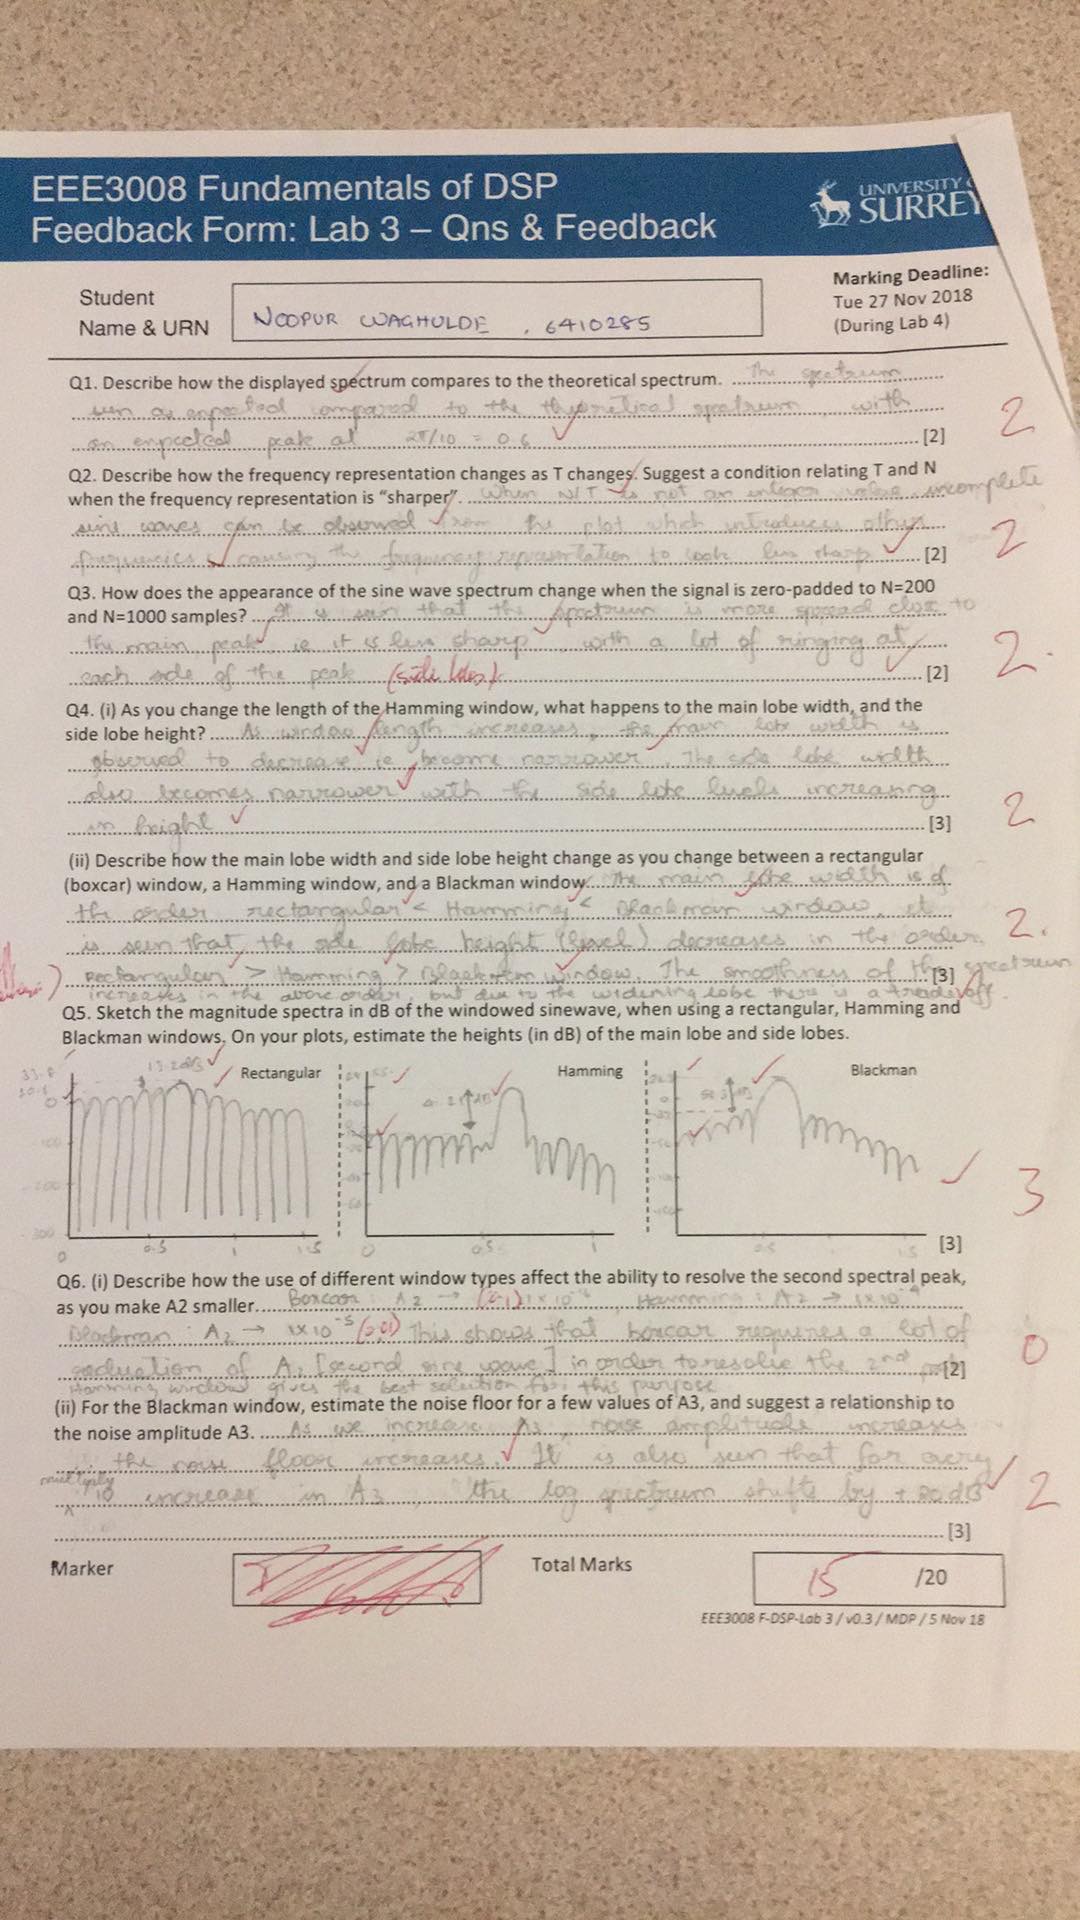 EEE3008 Fundamentals of DSP
Feedback Form: Lab 3 – Qns & Feedback
UNIVERSITY
SURREY
Student
Name & URN
NOOPUR WAGHULDE , 6410285
Marking Deadline:
Tue 27 Nov 2018
(During Lab 4)
Q1. Describe how the displayed spectrum compares to the theoretical spectrum. The spectrum
seen as expected compared to the theoretical spectrum, with
an expected peak at 2π/10 = 0.6 [2]
2
Q2. Describe how the frequency representation changes as T changes. Suggest a condition relating T and N
when the frequency representation is "sharper". When N/T is not an integer value, incomplete
sine waves can be observed from the plot which introduces other
frequencies causing the frequency representation to look less sharp [2]
2
Q3. How does the appearance of the sine wave spectrum change when the signal is zero-padded to N=200
and N=1000 samples? It is seen that the spectrum is more spread close to
the main peak ie it is less sharp with a lot of ringing at
each side of the peak (side lobes) [2]
2
Q4. (i) As you change the length of the Hamming window, what happens to the main lobe width, and the
side lobe height? As window length increases, the main lobe width is
observed to decrease ie become narrower. The side lobe width
also becomes narrower with the side lobe levels increasing
in height [3]
2
(ii) Describe how the main lobe width and side lobe height change as you change between a rectangular
(boxcar) window, a Hamming window, and a Blackman window. The main lobe width is of
the order rectangular < Hamming < Blackman window. It
is seen that the side lobe height (level) decreases in the order
2.
Rectangular > Hamming > Blackman window. The smoothness of the spectrum [3]
increases in the above order, but due to the widening lobe there is a tradeoff.
Q5. Sketch the magnitude spectra in dB of the windowed sinewave, when using a rectangular, Hamming and
Blackman windows. On your plots, estimate the heights (in dB) of the main lobe and side lobes.
Rectangular
Hamming
Blackman
0
0.5
1
1.5
0
0.5
1
0.5
1.5
[3]
3
Q6. (i) Describe how the use of different window types affect the ability to resolve the second spectral peak,
as you make A2 smaller. Boxcar : A2 → (0.1) Hamming : A2 → 1x10⁻⁴
Blackman : A2 → 1x10⁻⁵ This shows that boxcar requires a lot of
of A2 [second sine wave] in order to resolve the 2nd [2]
0
Hamming window gives the best solution for this purpose
(ii) For the Blackman window, estimate the noise floor for a few values of A3, and suggest a relationship to
the noise amplitude A3. As we increase A3, noise amplitude increases
the noise floor increases. It is also seen that for every
multiply
x 10 increase in A3, the log spectrum shifts by + 20dB
2
[3]
Marker
Total Marks
15 /20
EEE3008 F-DSP-Lab 3 / v0.3 / MDP / 5 Nov 18